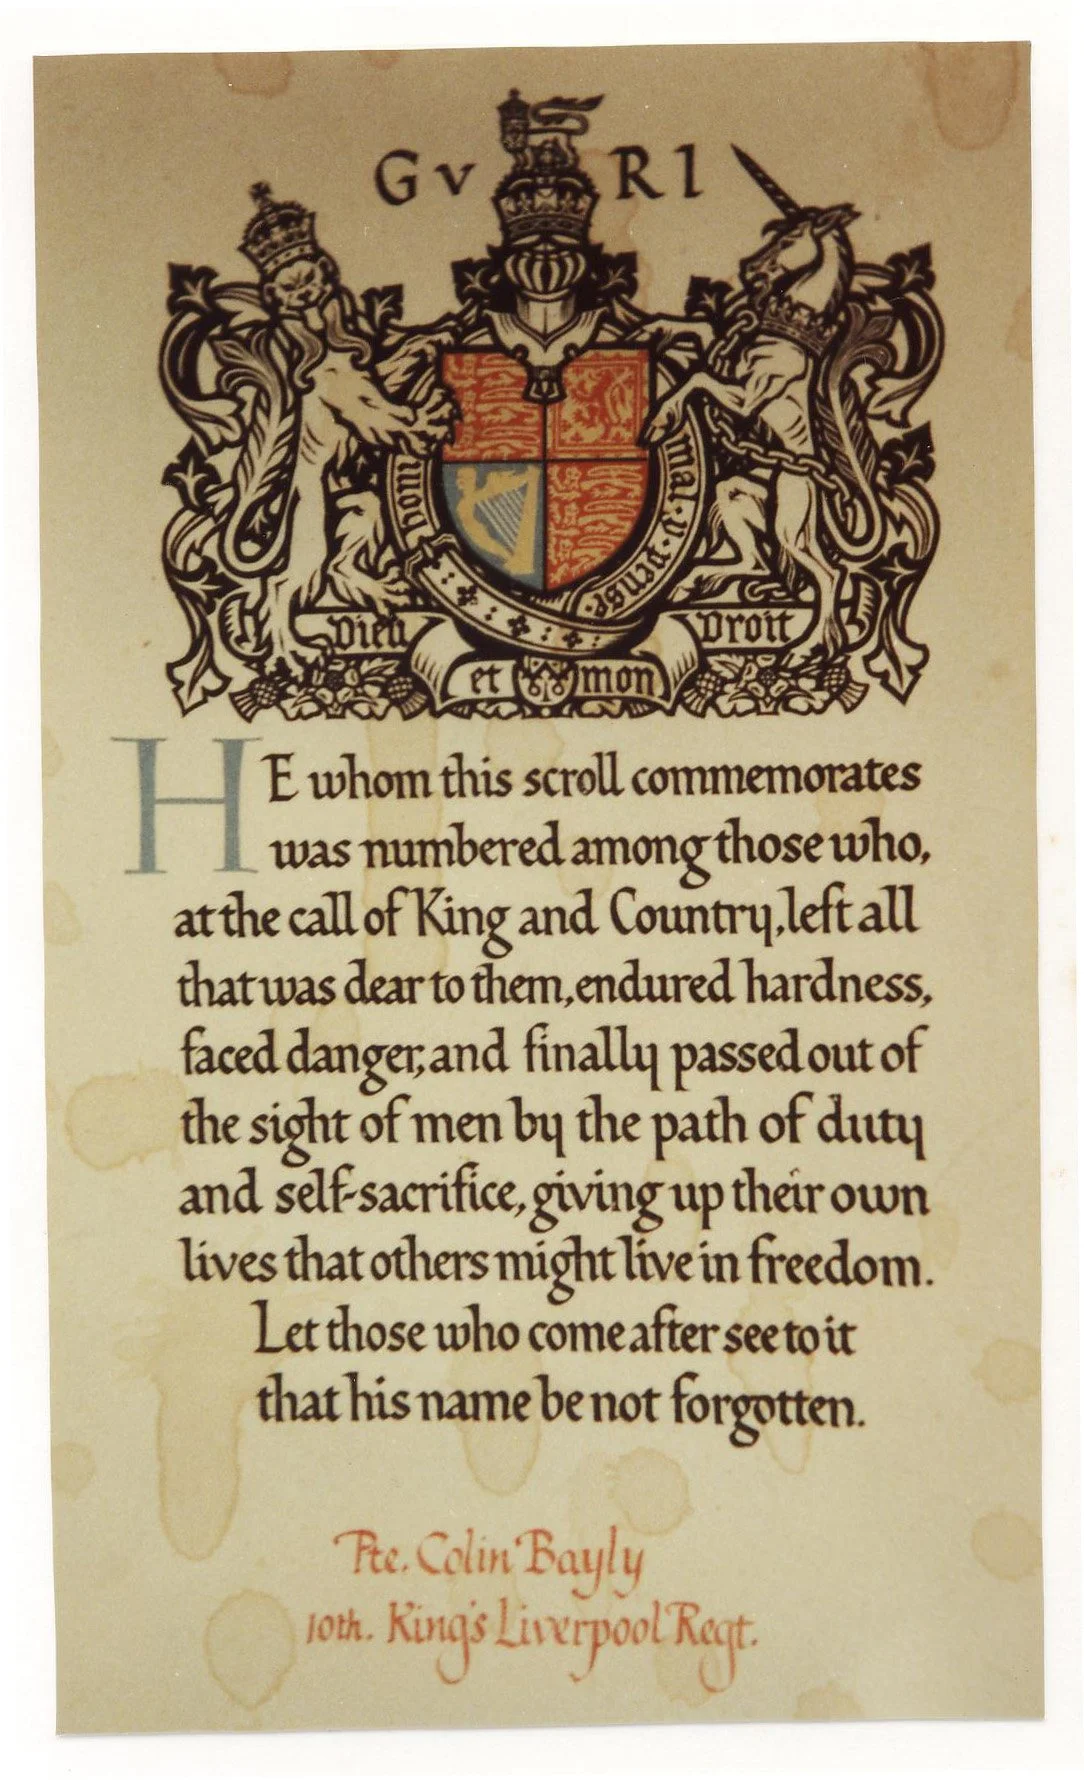 G v R I
hon
mal·y·pense·
Dieu et mon Droit
HE whom this scroll commemorates
was numbered among those who,
at the call of King and Country, left all
that was dear to them, endured hardness,
faced danger, and finally passed out of
the sight of men by the path of duty
and self-sacrifice, giving up their own
lives that others might live in freedom.
Let those who come after see to it
that his name be not forgotten.
Pte. Colin Bayly
10th. King's Liverpool Regt.